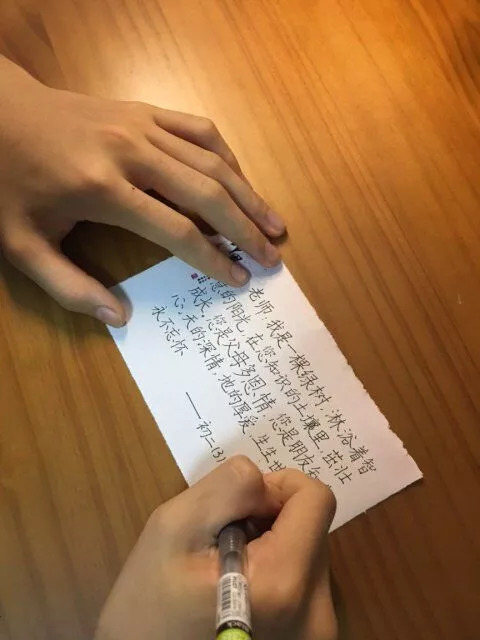 老师:我是一棵绿树;淋浴着智
慧的阳光,在您知识的土壤里,茁壮
成长,您是父母多恩情,您是朋友知
心;天的深情,地的厚爱,生生世
永不忘怀
——初二(3)
Black